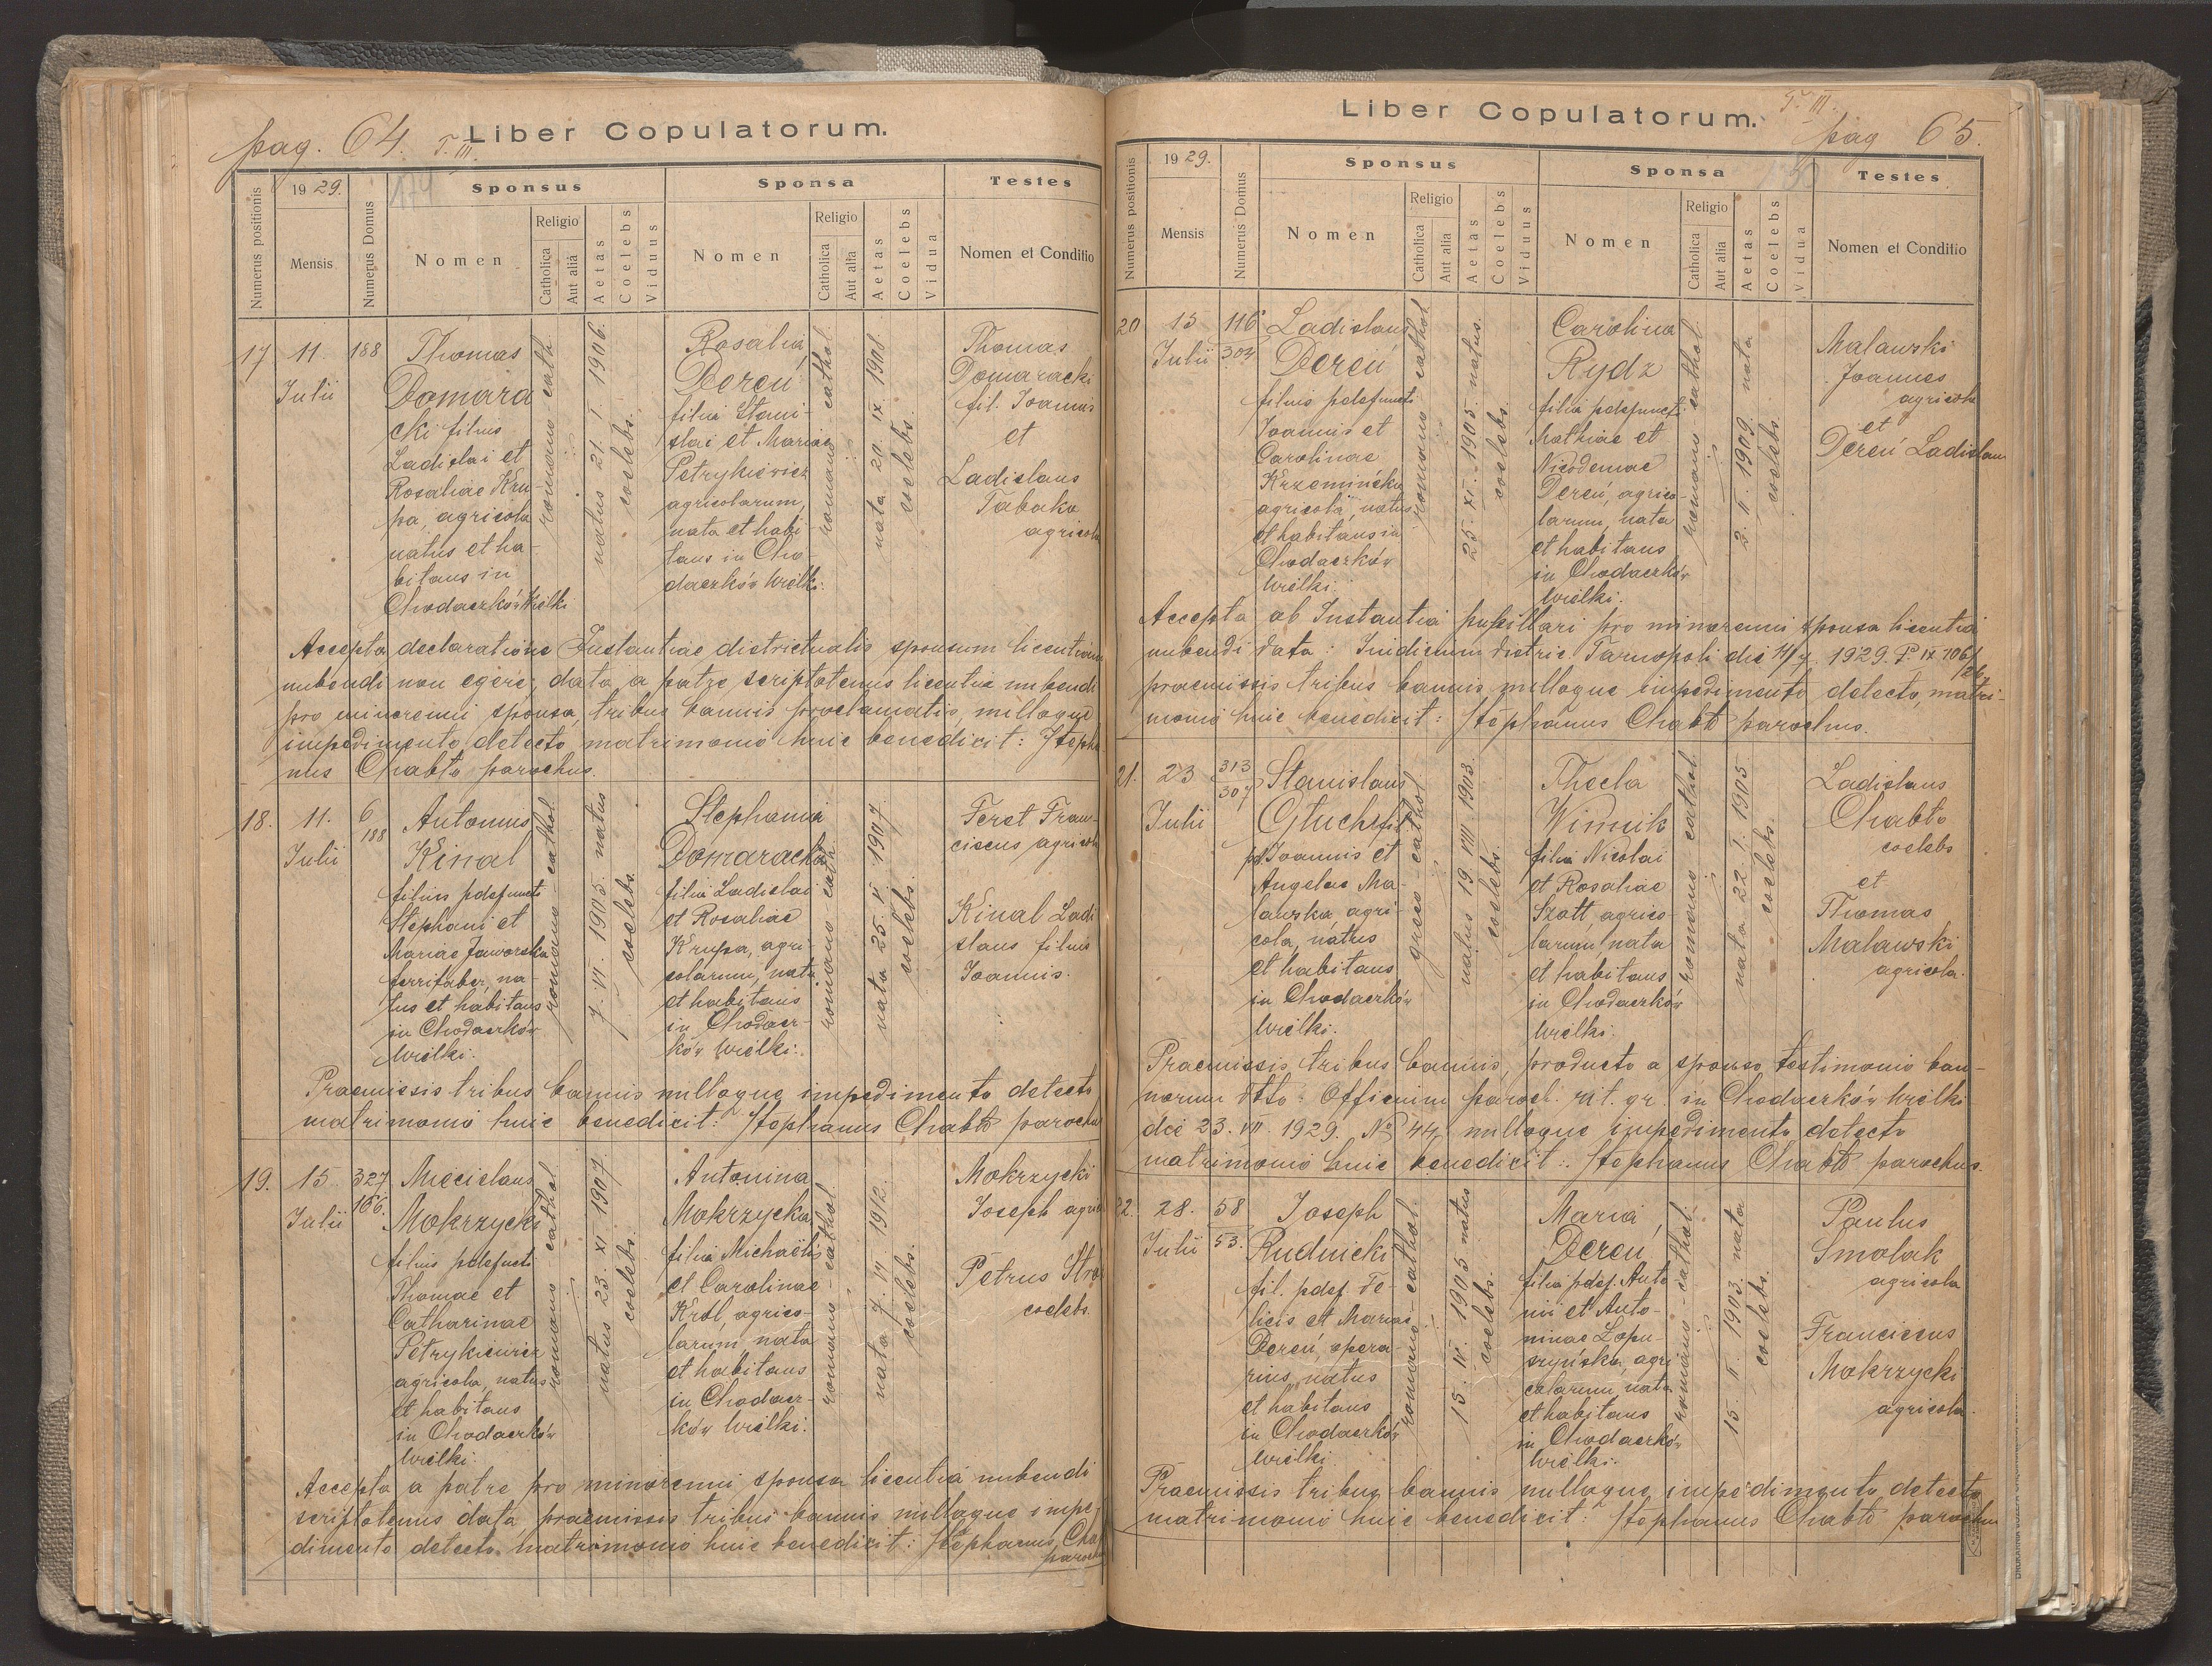 pag. 64. T. III. Liber Copulatorum.
Numerus positionis
1929.
Mensis
Numerus Domus
Sponsus
Nomen
Religio
Catholica
Aut aliá
Aetas
Coelebs
Viduus
Sponsa
Nomen
Religio
Catholica
Aut alia
Aetas
Coelebs
Vidua
Testes
Nomen et Conditio
17
11.
Julii
188
Thomas
Domara
cki filius
Ladislai et
Rosaliae Kru-
pa, agricola
natus et ha-
bitans in
Chodaczków Wielki
romano-cath.
natus 21. I. 1906.
coelebs.
Rosalia
Dereń
filia Stani-
slai et Mariae
Petrykiewicz
agricolarum,
nata et habi-
tans in Cho-
daczków Wielki.
romano-cathol.
nata 20. IX. 1908.
coelebs.
Thomas
Domaracki
fil. Joannis
et
Ladislaus
Tabaka
agricola
Accepta declaratione Instantiae districtualis sponsum licentiam
nubendi non egere, data a patre scriptotenus licentia nubendi
pro minorenni sponsa, tribus bannis proclamatis, nulloque
impedimento detecto matrimonio huic benedixit: Stepha
nus Chabło parochus.
18.
11.
Julii
6
188
Antonius
Kinal
filius pdefuncti
Stephani et
Mariae Jaworska
ferrifaber, na-
tus et habitans
in Chodaczków
Wielki.
romano-cathol.
7. VI. 1905. natus
coelebs.
Stephania
Domaracka
filia Ladislai
et Rosaliae
Krupa, agri-
colarum, nata
et habitans
in Chodacz-
ków Wielki.
romano-cath.
nata 25. VI. 1907.
coelebs.
Feret Fran-
ciscus agricola
Kinal Ladi
slaus filius
Joannis.
Praemissis tribus bannis nulloque impedimento detecto
matrimonio huic benedixit: Stephanus Chabło parochus
19.
15.
Julii
327
166.
Miecislaus
Mokrzycki
filius pdefuncti
Thomae et
Catharinae
Petrykiewicz
agricola, natus
et habitans
in Chodaczków
Wielki.
romano-cathol.
natus 23. XI. 1907.
coelebs.
Antonina
Mokrzycka
filia Michaëlis
et Carolinae
Król, agrico-
larum nata
et habitans
in Chodacz-
ków Wielki.
romano-cathol.
nata 7. VI. 1912.
coelebs.
Mokrzycki
Joseph agric
Petrus
coelebs.
Accepta a patre pro minorenni sponsa licentia nubendi
scriptotenus data, praemissis tribus bannis nulloque impe-
dimento detecto matrimonio huic benedixit: Stephanus Cha
parochus
Liber Copulatorum. T. III.
pag 65.
Numerus positionis
1929.
Mensis
Numerus Domus
Sponsus
Nomen
Religio
Catholica
Aut alia
Aetas
Coelebs
Viduus
Sponsa
Nomen
Religio
Catholica
Aut alia
Aetas
Coelebs
Vidua
Testes
Nomen et Conditio
20
15
Julii
116
304
Ladislaus
Dereń
filius pdefuncti
Joannis et
Carolinae
Krzemińska
agricola, natus
et habitans in
Chodaczków
Wielki.
romano cathol.
25. XI. 1905. natus.
coelebs.
Carolina
Rydz
filia pdefuncti
Mathiae et
Nicodemae
Dereń, agrico-
larum, nata
et habitans
in Chodaczków
Wielki.
romano-cathol.
2. II. 1909. nata
coelebs.
Malawski
Joannes
agricola
et
Dereń Ladislaus
Accepta ab Instantia pupillari pro minorenni sponsa licentia
nubendi data: Iudicium distric. Tarnopoli die 1929. P. IX 106/
praemissis tribus bannis nulloque impedimento detecto, matri-
monio huic benedixit: Stephanus Chabło parochus.
21.
23
Julii
313
307
Stanislaus
Głuch, fil.
pd. Joannis et
Angelae Ma-
lawska, agri-
cola, natus
et habitans
in Chodaczków
Wielki.
graeco-cathol
natus 19 VIII. 1903.
coelebs.
Thecla
Winnik
filia Nicolai
et Rosaliae
Szatt agrico-
larum nata
et habitans
in Chodaczków
Wielki.
romano cathol.
nata 22. I. 1905
coelebs.
Ladislaus
Chabło
coelebs
et
Thomas
Malawski
agricola.
Praemissis tribus bannis, producto a sponso testimonio ban-
norum dtto: Officium paroch. rit. gr. in Chodaczków Wielki
die 23. VII. 1929. No 44, nulloque impedimento detecto
matrimonio huic benedixit: Stephanus Chabło parochus.
22.
28.
Julii
58
53.
Joseph
Rudnicki
fil. pdef. Fe-
licis et Mariae
Dereń, opera
rius, natus
et habitans
in Chodaczków
Wielki.
romano-cathol.
15. IV. 1905 natus
coelebs.
Maria
Dereń,
filia pdef. Anto
nii et Anto-
ninae Łopu-
szyńska, agri
colarum, nata
et habitans
in Chodaczków
Wielki.
romano-cathol.
15. II. 1903. nata
coelebs.
Paulus
Smolak
agricola
Franciscus
Mokrzycki
agricola.
Praemissis tribus bannis nulloque impedimento detecto
matrimonio huic benedixit: Stephanus Chabło parochus